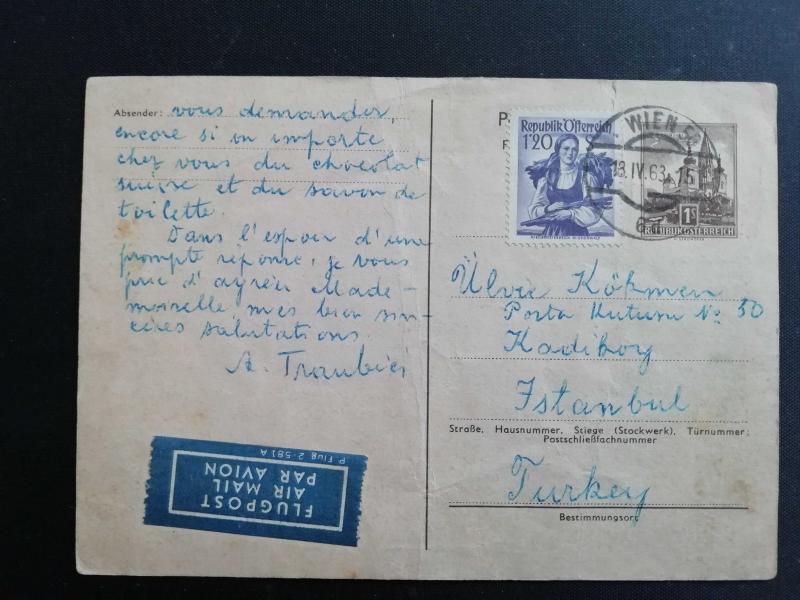 Absender: vous demander,
encore si on importe
chez vous du chocolat
suisse et du savon de
toilette.
Dans l'espoir d'une
prompte réponse, je vous
prie d'agréer Made-
moiselle, mes bien sin-
cères salutations.
A.
FLUGPOST
AIR MAIL
PAR AVION
P Flug 2-581A
Republik Österreich
1'20
WIEN
13.IV.63.-15
1S
REPUBLIK ÖSTERREICH
Ülvie Kökmen
Posta Kutusu No 50
Kadiköy
Istanbul
Straße, Hausnummer, Stiege (Stockwerk), Türnummer;
Postschließfachnummer
Turkey
Bestimmungsort